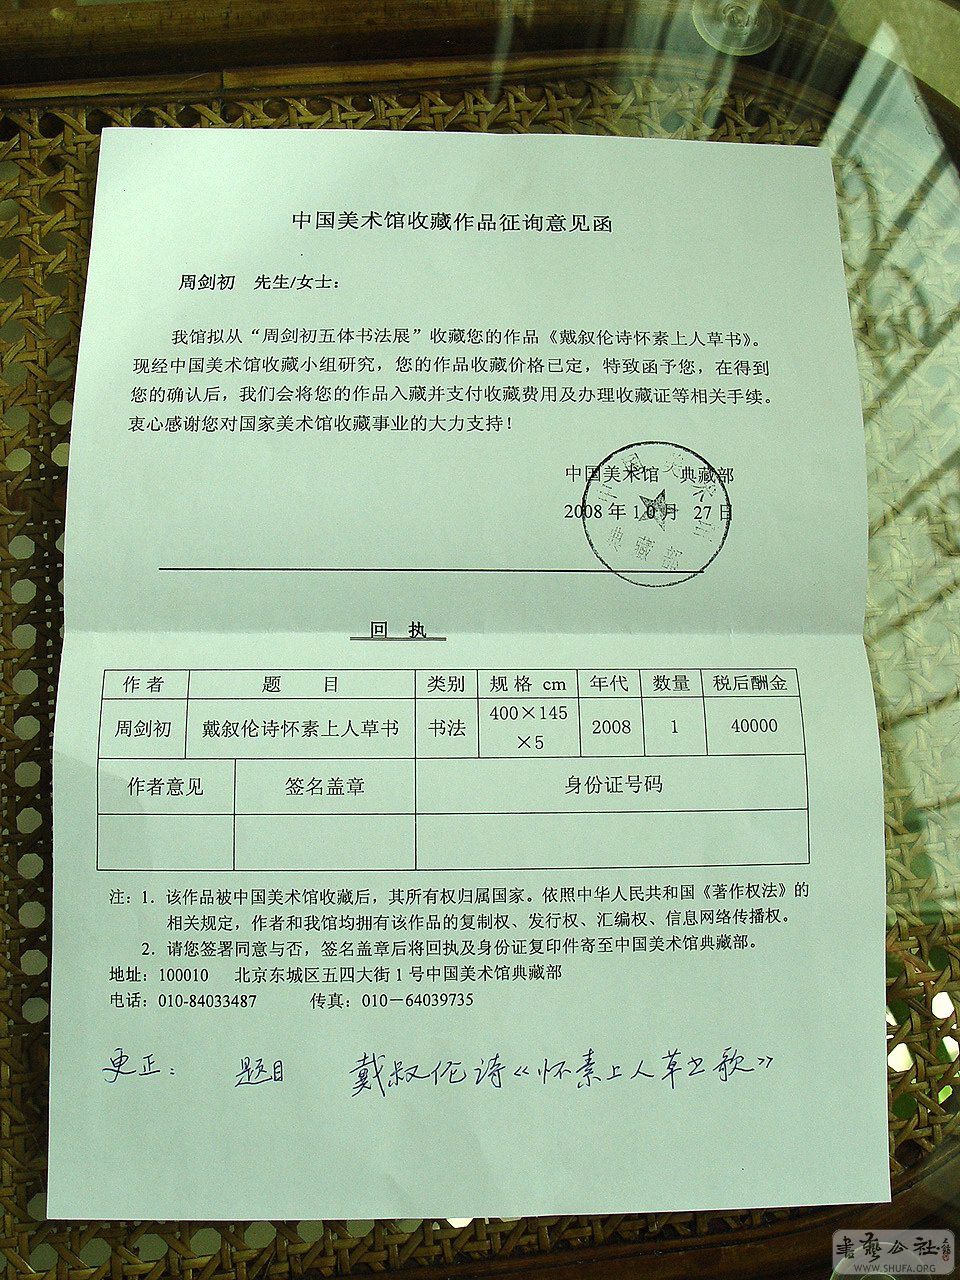 中国美术馆收藏作品征询意见函
周剑初 先生/女士：
我馆拟从“周剑初五体书法展”收藏您的作品《戴叙伦诗怀素上人草书》。
现经中国美术馆收藏小组研究，您的作品收藏价格已定，特致函予您，在得到
您的确认后，我们会将您的作品入藏并支付收藏费用及办理收藏证等相关手续。
衷心感谢您对国家美术馆收藏事业的大力支持！
中国美术馆 典藏部
2008 年 10 月 27 日
典藏部
回 执
作 者 题 目 类别 规 格 cm 年代 数量 税后酬金
周剑初 戴叙伦诗怀素上人草书 书法 400×145 ×5 2008 1 40000
作者意见 签名盖章 身份证号码
注：1. 该作品被中国美术馆收藏后，其所有权归属国家。依照中华人民共和国《著作权法》的
相关规定，作者和我馆均拥有该作品的复制权、发行权、汇编权、信息网络传播权。
2. 请您签署同意与否，签名盖章后将回执及身份证复印件寄至中国美术馆典藏部。
地址：100010 北京东城区五四大街 1 号中国美术馆典藏部
电话：010-84033487 传真：010－64039735
更正： 题目 戴叔伦诗《怀素上人草书歌》
書藝公社
WWW.SHUFA.ORG